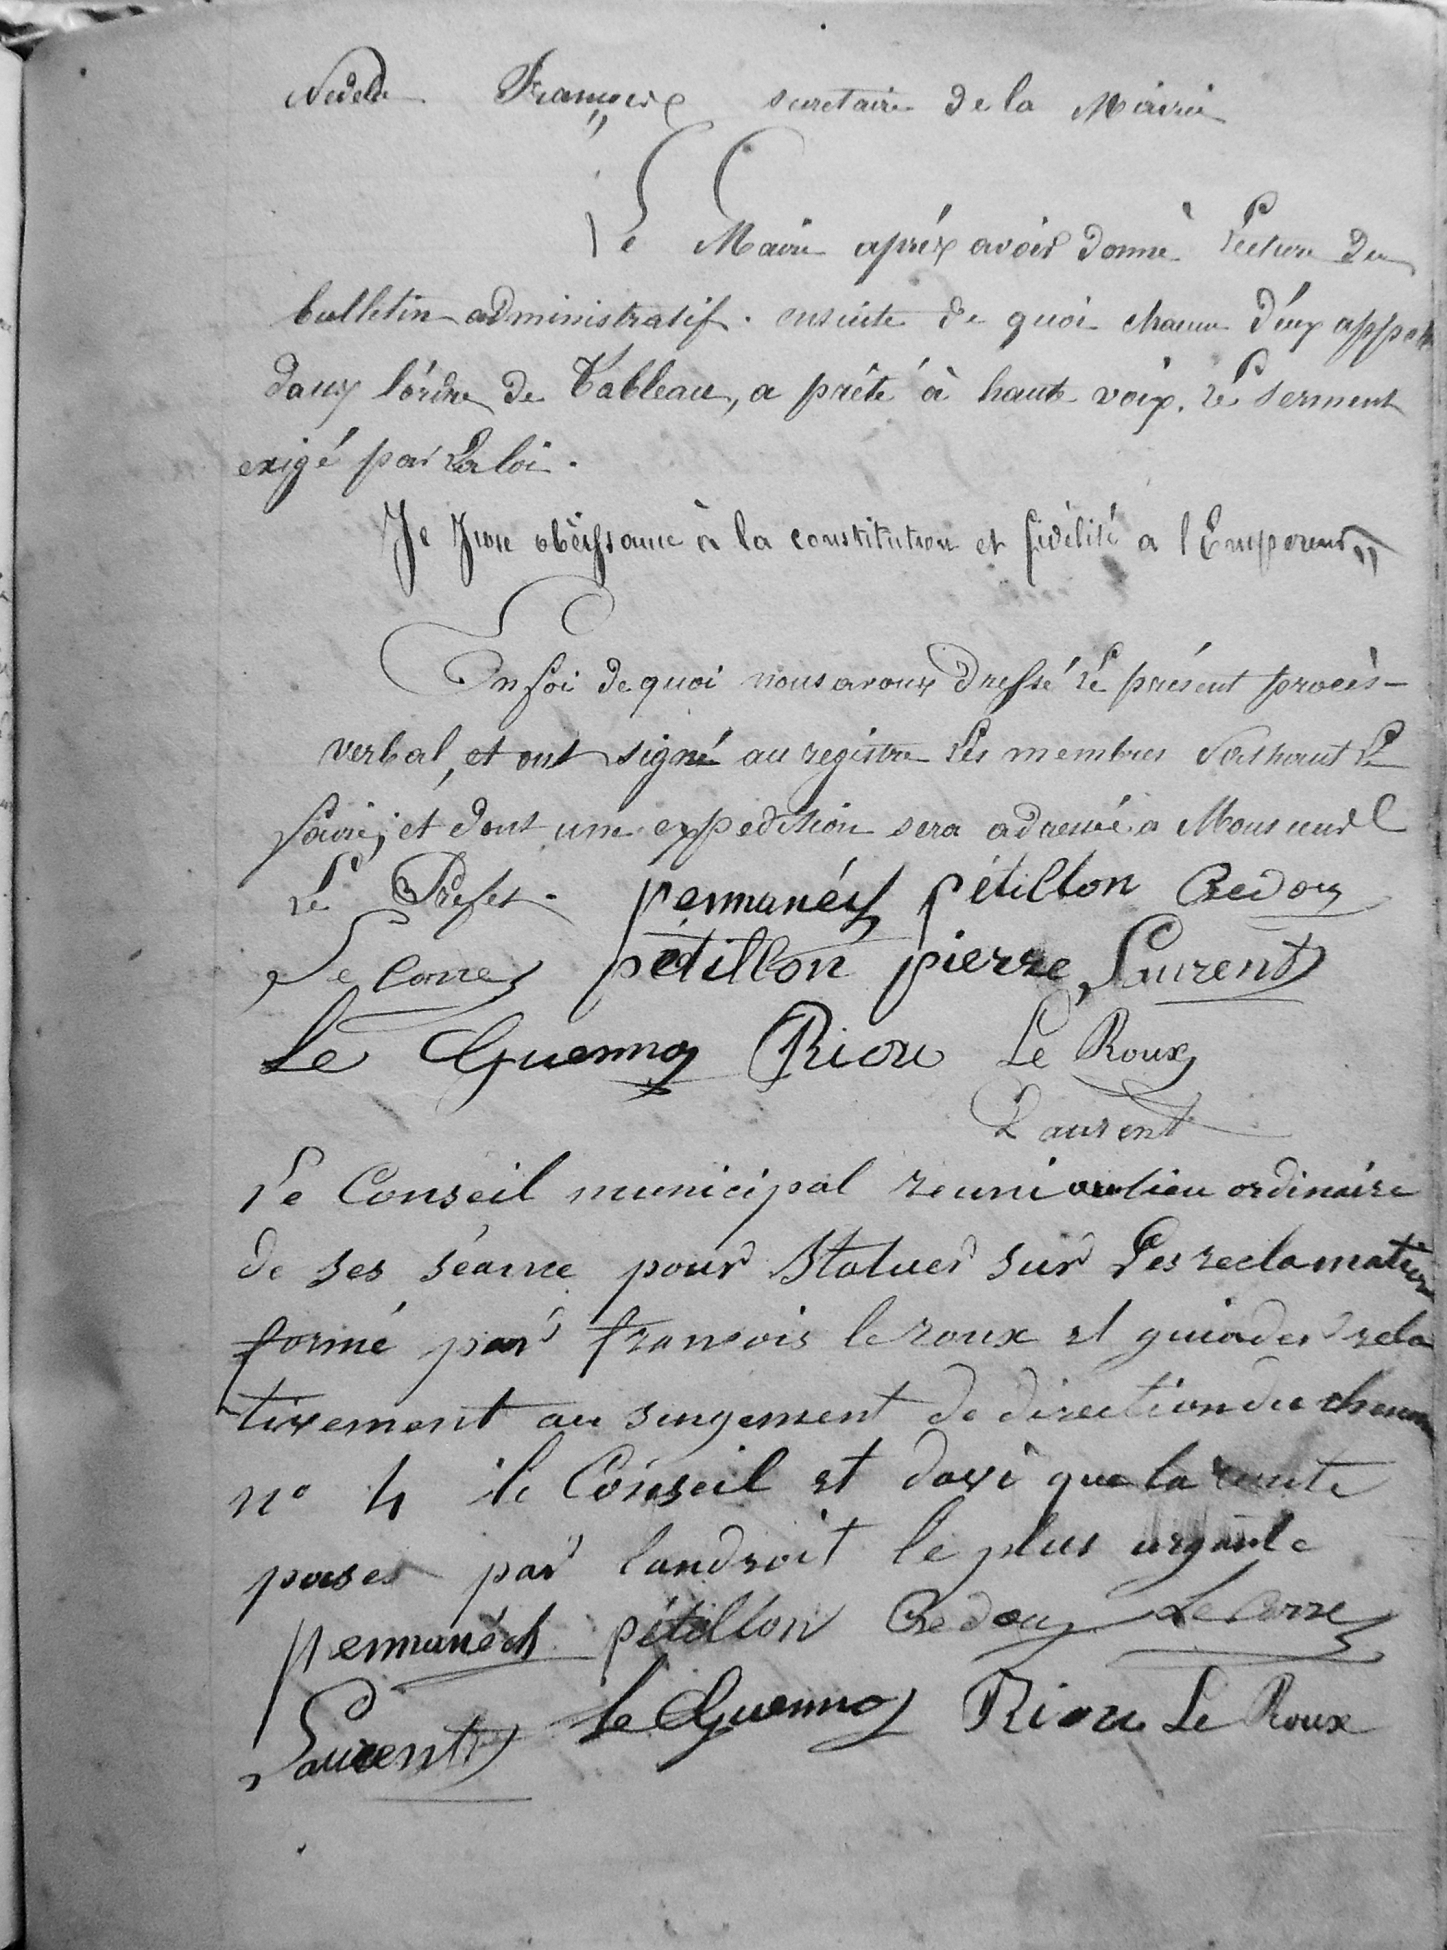 Nedelec François secretaire de la Mairie
Le Maire aprés avoir donné Lecture du
bulletin administratif. ensuite de quoi chacun d'eux appelé
dans l'órdre de Tableau, a prêté à haute voix, le serment
exigé par la loi.
Je Jure obéissance à la constitution et fidélité a l'Empereur "
En foi de quoi nous avons dressé le présent procès-
verbal, et ont signé au registre les membres sachant le
faire; et dont une expedition sera adressée a Monsieur
Le Prefet. pennanéch pétillon Credou
Le Corre pétillon pierre Laurent
Le Guennoz Riou Le Roux
Laurent
Le Conseil municipal reuni au lieu ordinaire
de ses séance pour statuer sur Les reclamation
formé par francois le roux et guiader rela
tivement au sengement de direction du chemin
no 4 le Conseil et davi que la route
passer par landroit le plus urgente
pennanéch pétillon Credou Le Corre
Laurent Le Guennoz Riou Le Roux